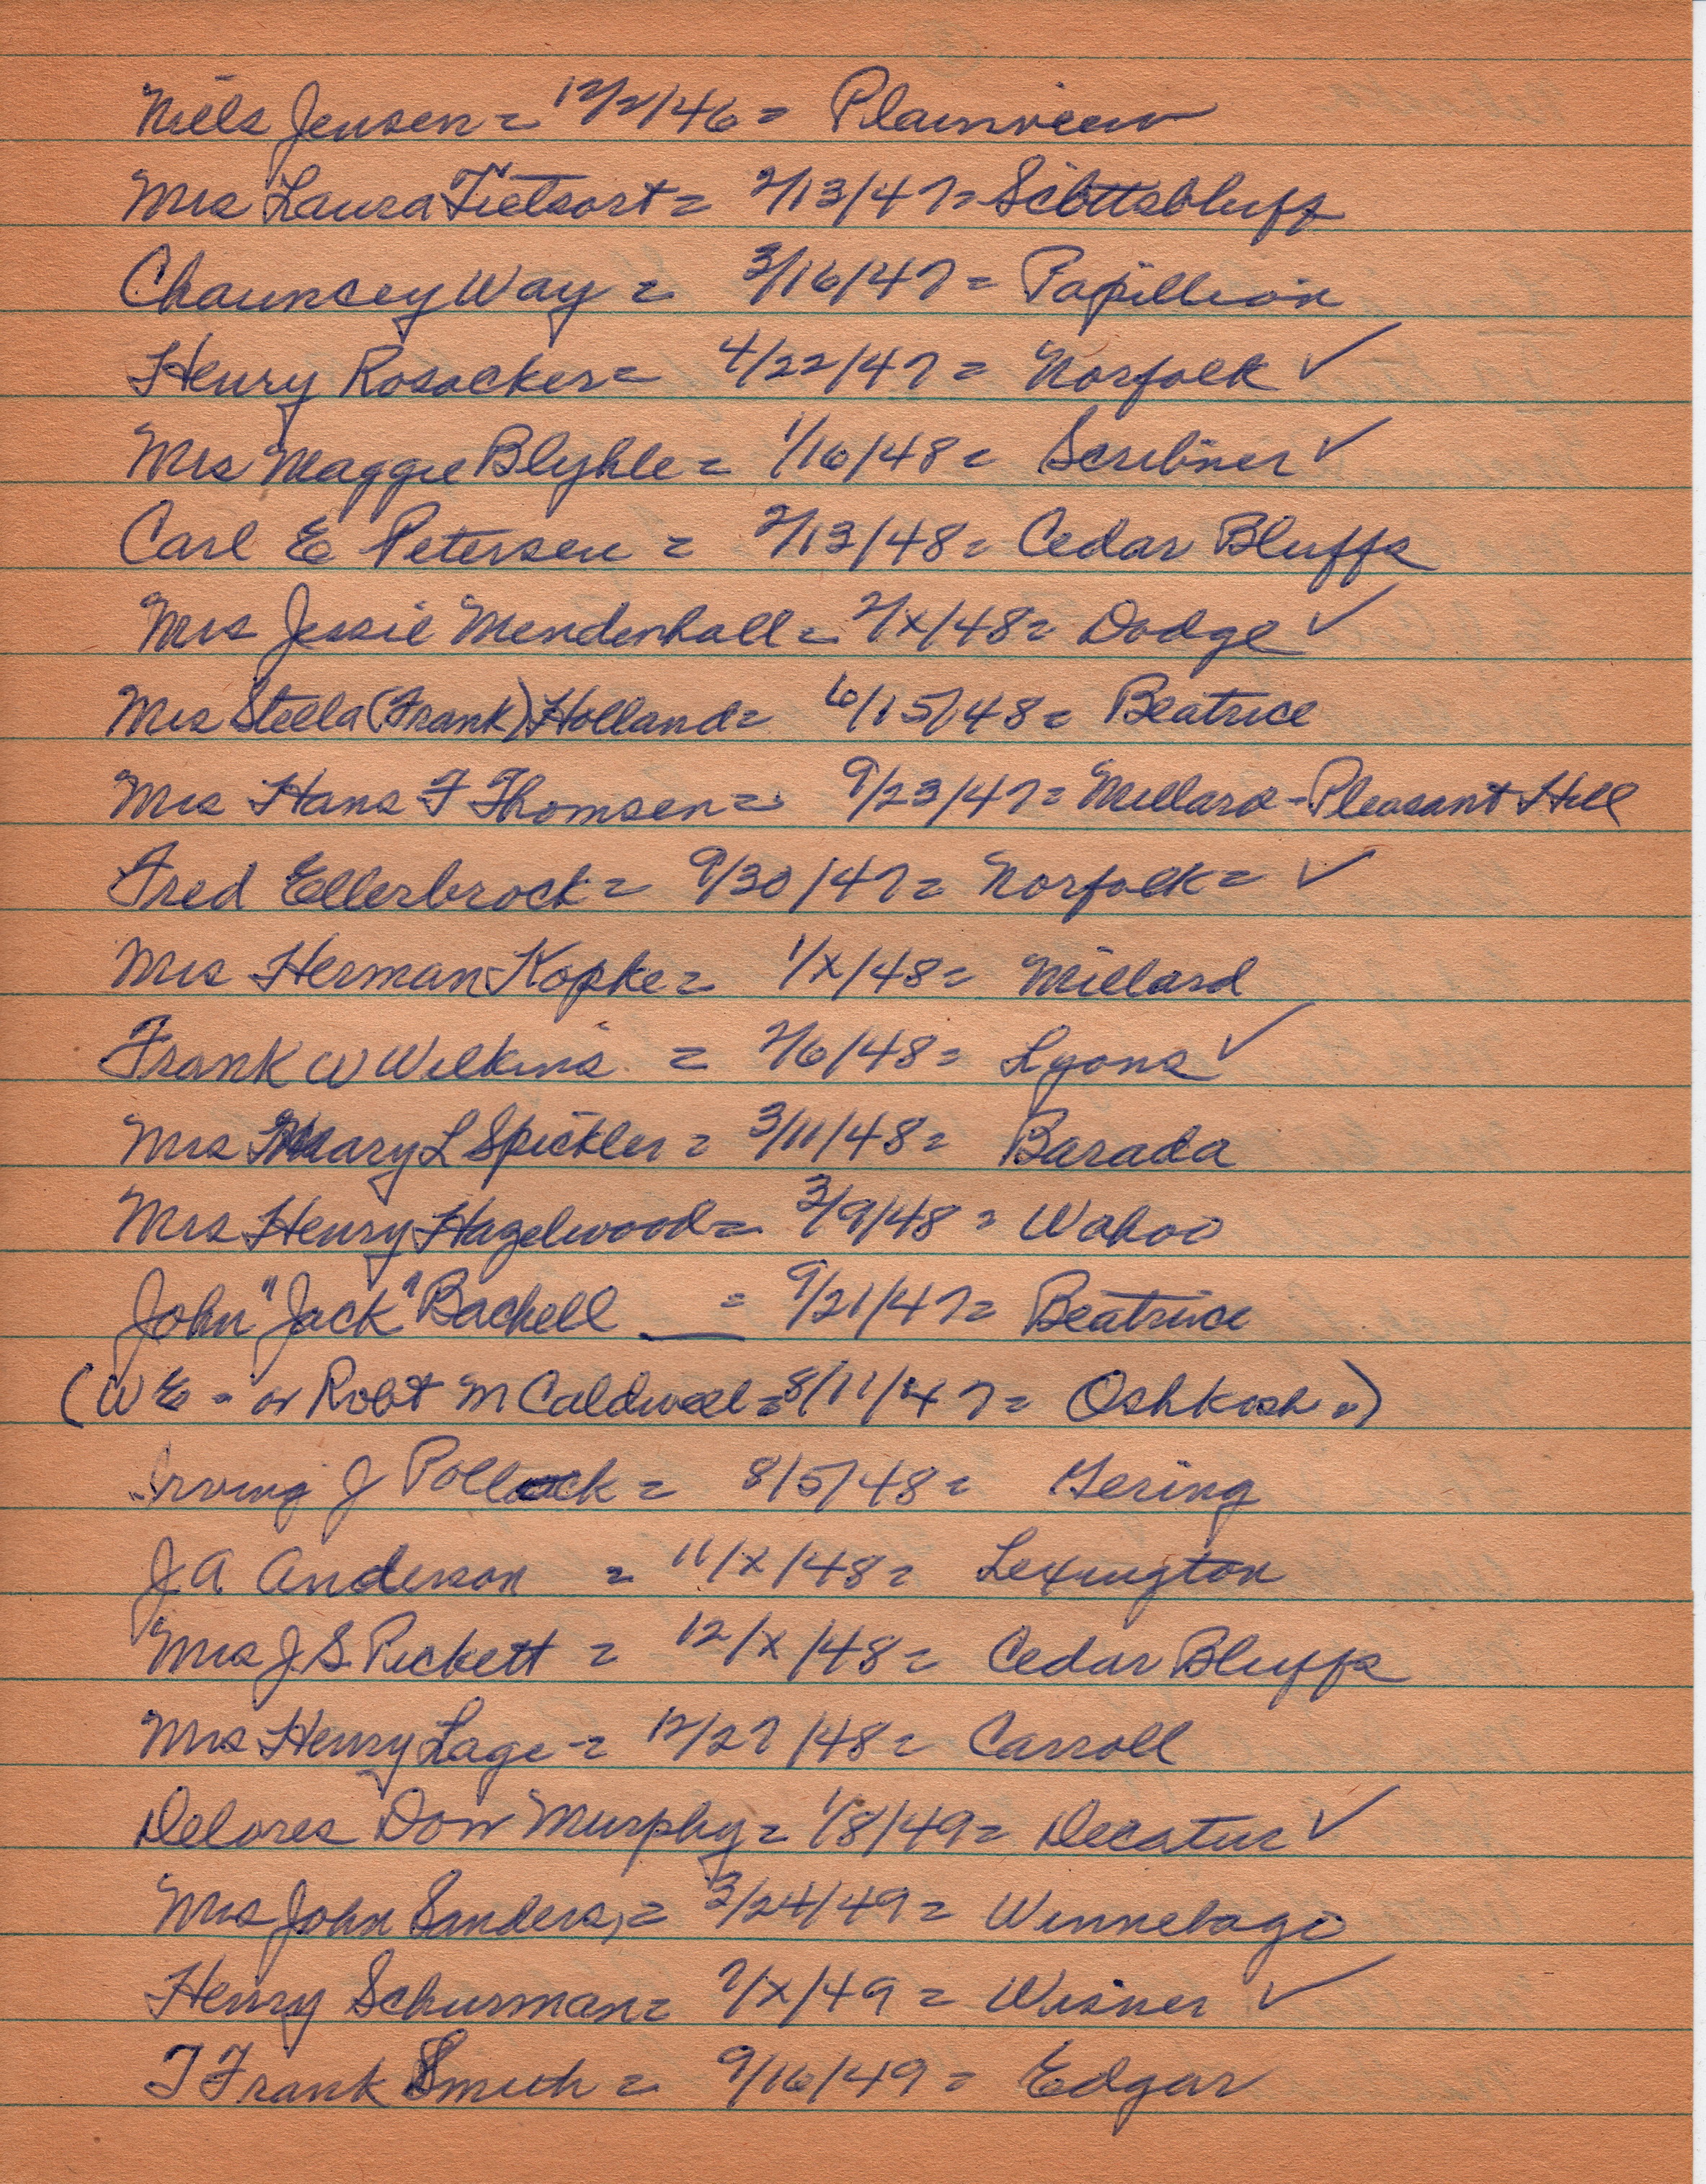 Niels Jensen = 12/2/46 = Plainview
Mrs Laura Tietsort = 2/13/47 = Scottsbluff
Chauncey Way = 3/16/47 = Papillion
Henry Rosacker = 4/22/47 = Norfolk ✓
Mrs Maggie Blyhle = 1/16/48 = Scribner ✓
Carl E Petersen = 2/13/48 = Cedar Bluffs
Mrs Jessie Mendenhall = 2/x/48 = Dodge ✓
Mrs Stella (Frank) Holland = 6/15/48 = Beatrice
Mrs Hans F Thomsen = 9/23/47 = Millard - Pleasant Hill
Fred Ellerbrock = 9/30/47 = Norfolk = ✓
Mrs Herman Kopke = 1/x/48 = Millard
Frank W Wilkins = 2/6/48 = Lyons ✓
Mrs Mary L Spickler = 3/11/48 = Barada
Mrs Henry Hazelwood = 3/9/48 = Wahoo
John "Jack" Bachell __ = 9/21/47 = Beatrice
(W E - or Robt M Caldwell = 8/11/47 = Oshkosh.)
Irving J Pollock = 8/5/48 = Gering
J A Anderson = 11/x/48 = Lexington
Mrs J. S. Pickett = 12/x/48 = Cedar Bluffs
Mrs Henry Lage = 12/27/48 = Carroll
Delores Don Murphy = 1/8/49 = Decatur ✓
Mrs John Sanders, = 3/24/49 = Winnebago
Henry Schurman = 7/x/49 = Wisner ✓
T Frank Smith = 9/16/49 = Edgar